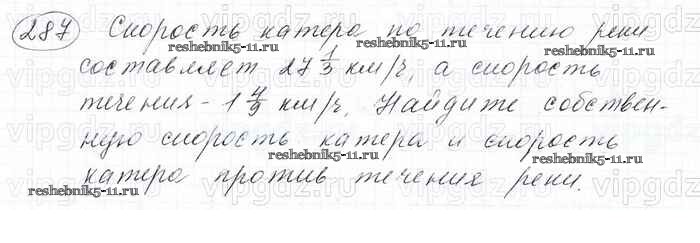 287 Скорость катера по течению реки
составляет 27 1/3 км/ч, а скорость
течения - 1 4/9 км/ч. Найдите собствен-
ную скорость катера и скорость
катера против течения реки.
reshebnik5-11.ru
reshebnik5-11.ru
reshebnik5-11.ru
reshebnik5-11.ru
reshebnik5-11.ru
reshebnik5-11.ru
vipgdz.ru